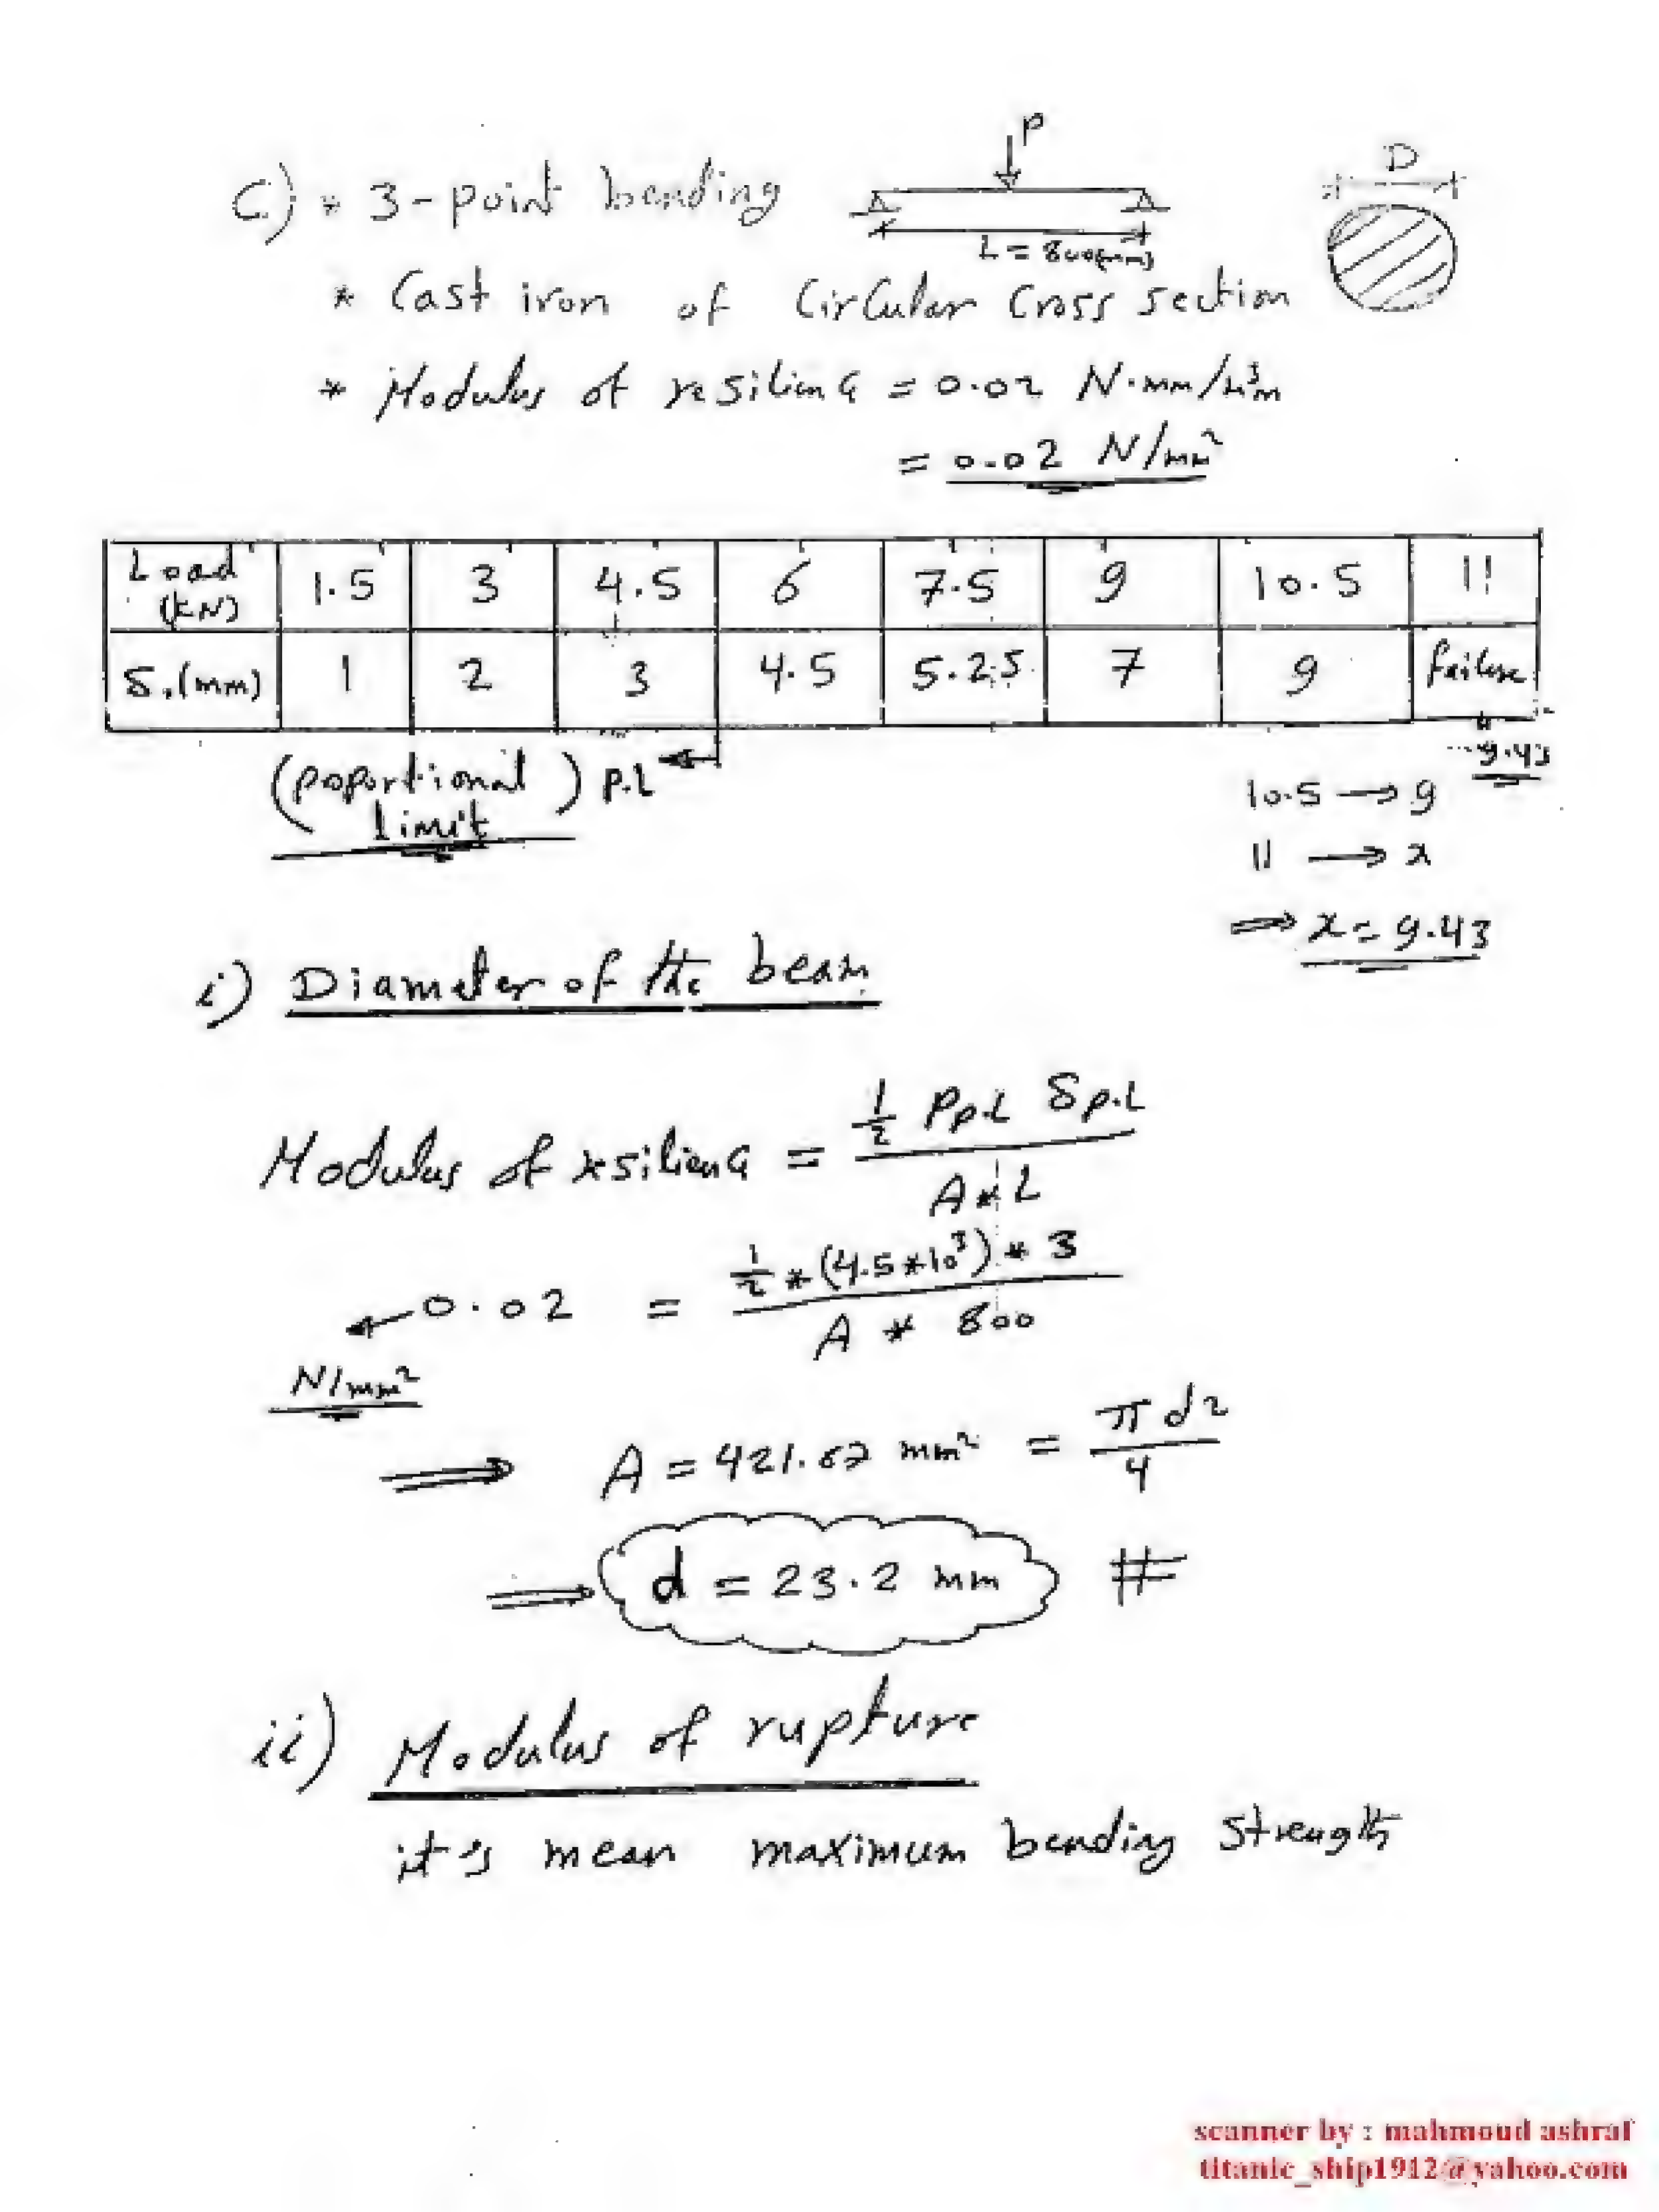 C) * 3-point bending
P
L = 800(mm)
D
* Cast iron of Circular Cross section
* Modulus of resilience = 0.02 N.mm/mm³
= 0.02 N/mm²
Load (kN) 1.5 3 4.5 6 7.5 9 10.5 11
δ.(mm) 1 2 3 4.5 5.25 7 9 failure
9.43
(poportional limit) P.L
10.5 → 9
11 → x
⇒ x = 9.43
i) Diameter of the beam
Modulus of resilience = ½ Pp.L δp.L / A * L
0.02 = ½ * (4.5*10³) * 3 / A * 800
N/mm²
⇒ A = 421.87 mm² = πd² / 4
⇒ d = 23.2 mm #
ii) Modulus of rupture
it's mean maximum bending strength
scanner by : mahmoud ashraf
titanic_ship1912@yahoo.com